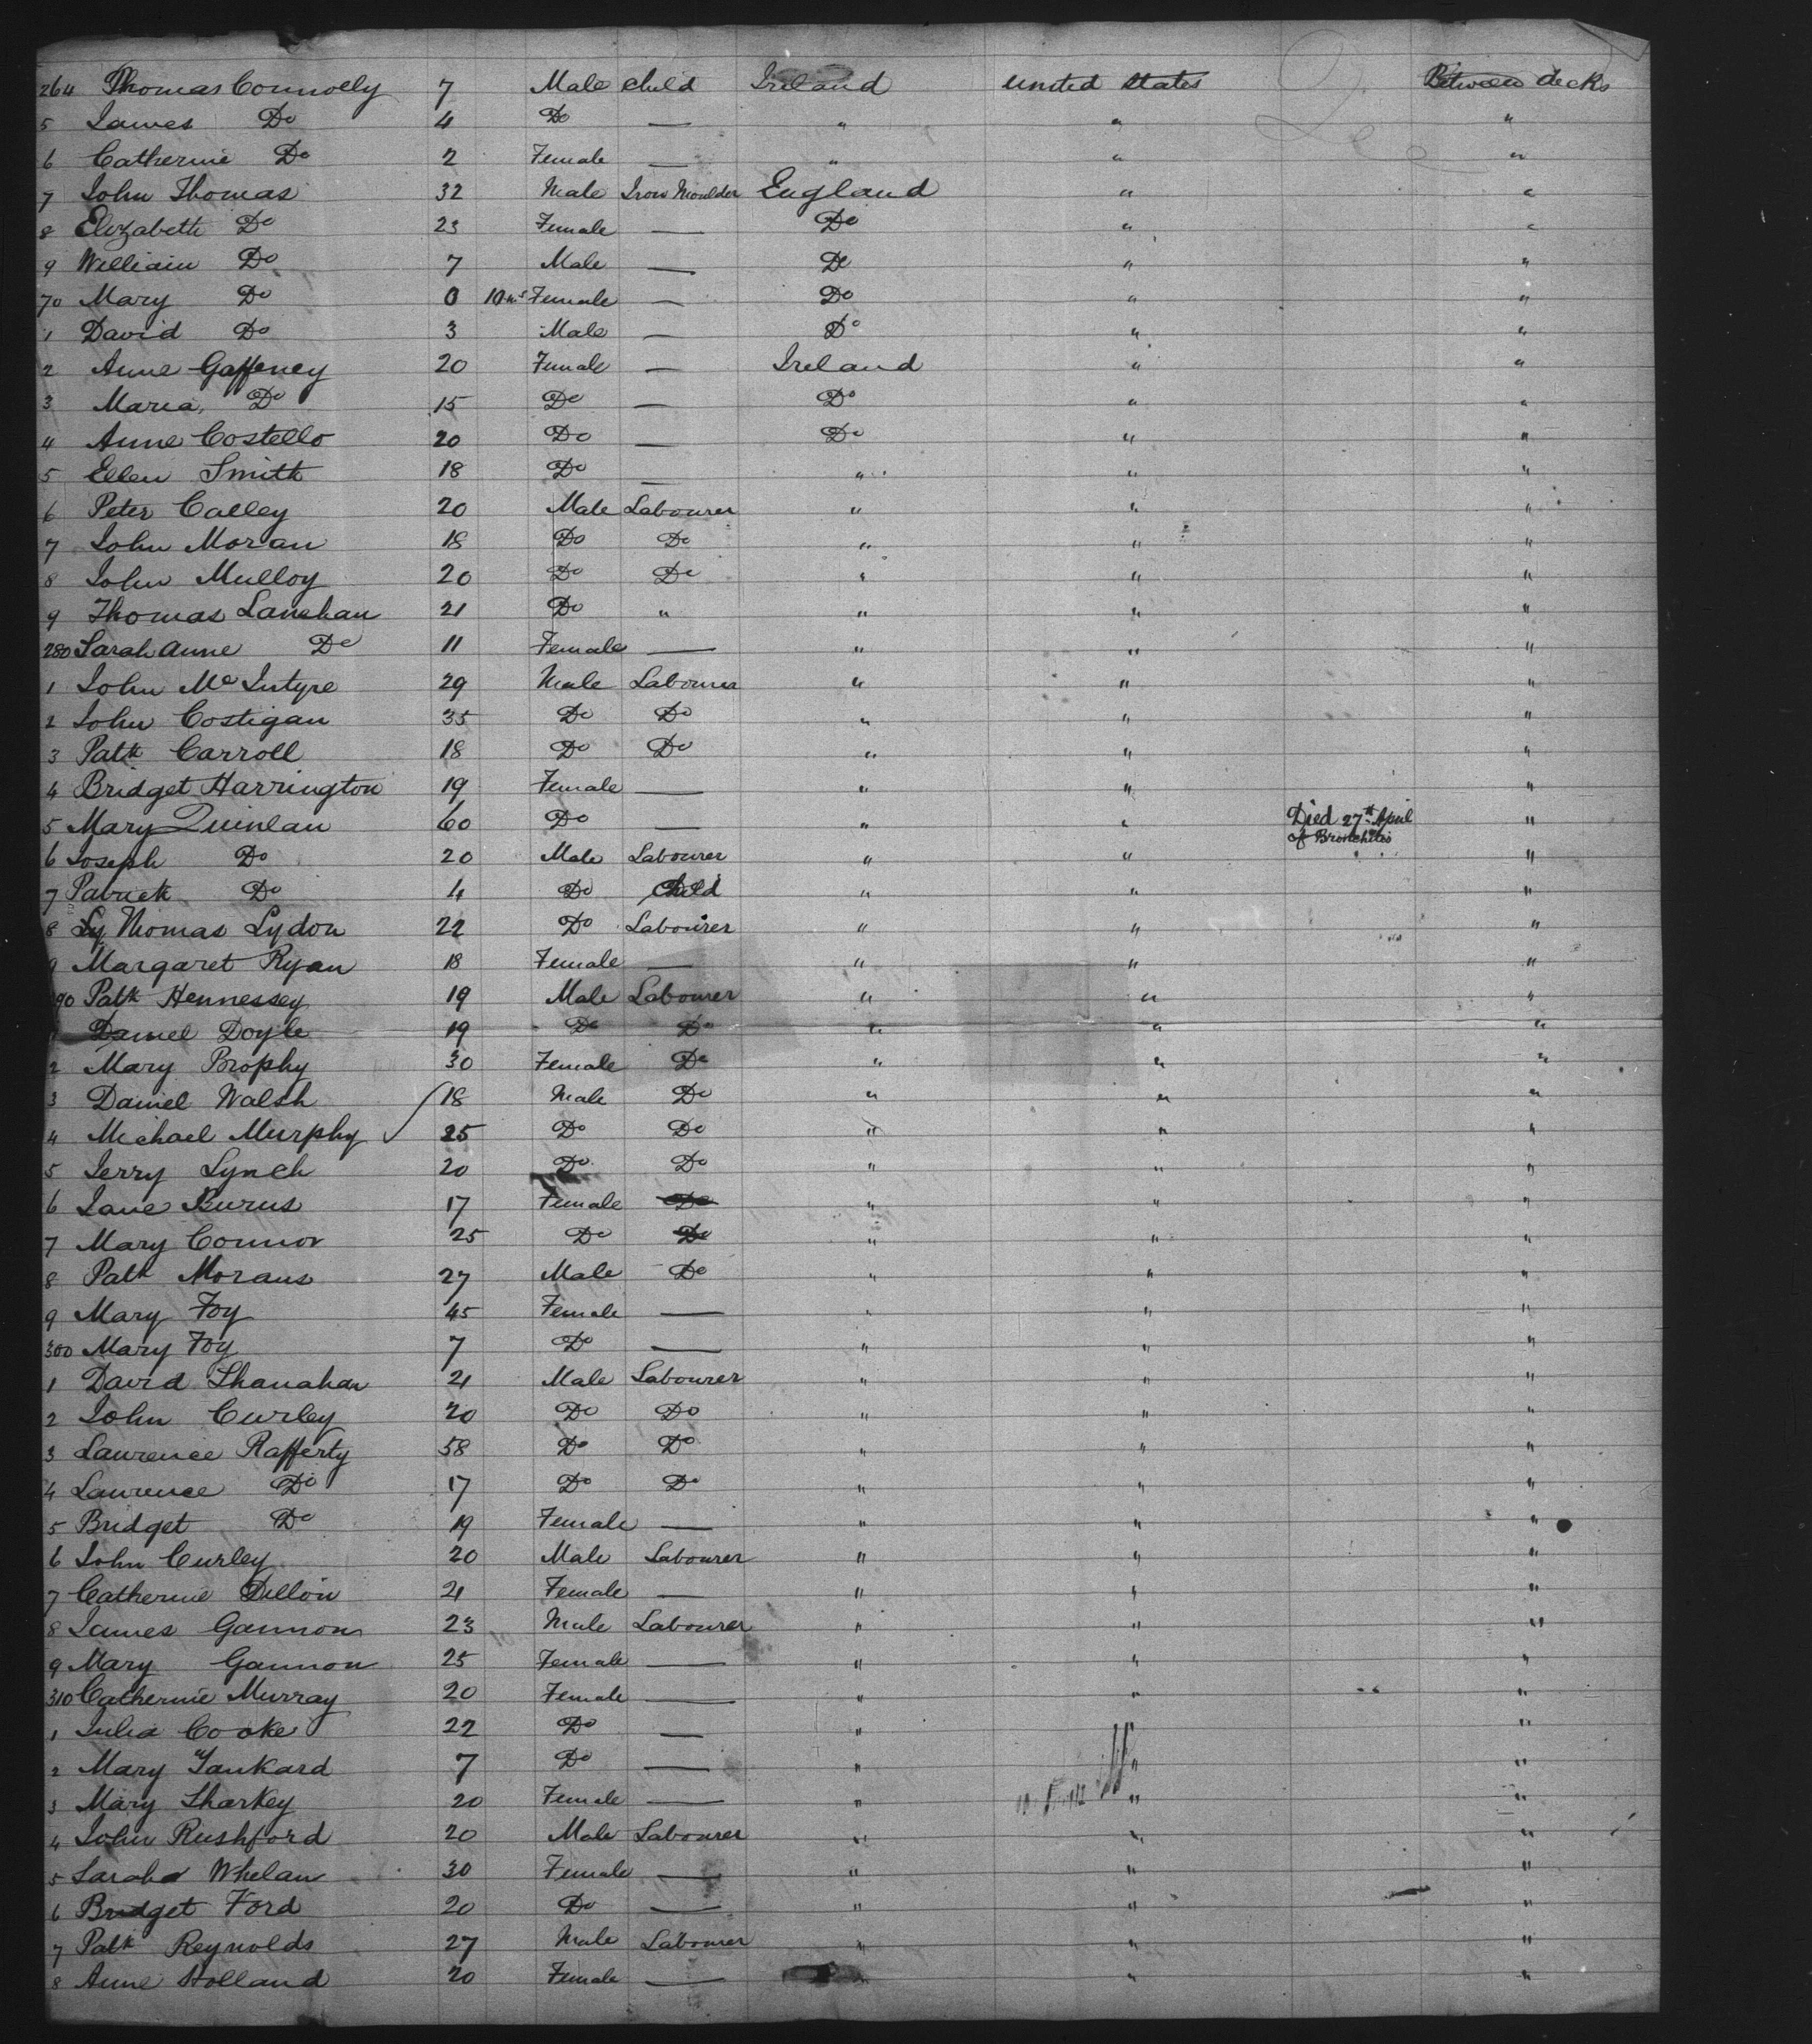 264 Thomas Connolly 7 Male Child Ireland United States Between decks
5 James Do 4 Do — " " "
6 Catherine Do 2 Female — " " "
7 John Thomas 32 Male Iron Moulder England " "
8 Elizabeth Do 23 Female — Do " "
9 William Do 7 Male — Do " "
70 Mary Do 0 10 ms Female — Do " "
1 David Do 3 Male — Do " "
2 Anne Gaffeney 20 Female — Ireland " "
3 Maria Do 15 Do — Do " "
4 Anne Costello 20 Do — Do " "
5 Ellen Smith 18 Do — " " "
6 Peter Calley 20 Male Labourer " " "
7 John Moran 18 Do Do " " "
8 John Mulloy 20 Do Do " " "
9 Thomas Lanehan 21 Do " " " "
280 Sarah Anne Do 11 Female — " " "
1 John Mc Intyre 29 Male Labourer " " "
2 John Costigan 35 Do Do " " "
3 Patk Carroll 18 Do Do " " "
4 Bridget Harrington 19 Female — " " "
5 Mary Quinlan 60 Do — " " Died 27th April of Bronchitis "
6 Joseph Do 20 Male Labourer " " "
7 Patrick Do 4 Do Child " " "
8 Ly Thomas Lydon 22 Do Labourer " " "
9 Margaret Ryan 18 Female — " " "
90 Patk Hennessey 19 Male Labourer " " "
Daniel Doyle 19 Do Do " " "
2 Mary Brophy 30 Female Do " " "
3 Daniel Walsh 18 Male Do " " "
4 Michael Murphy 25 Do Do " " "
5 Jerry Lynch 20 Do Do " " "
6 Jane Burns 17 Female Do " " "
7 Mary Connor 25 Do Do " " "
8 Patk Morans 27 Male Do " " "
9 Mary Foy 45 Female — " " "
300 Mary Foy 7 Do — " " "
1 David Shanahan 21 Male Labourer " " "
2 John Curley 20 Do Do " " "
3 Laurence Rafferty 58 Do Do " " "
4 Laurence Do 17 Do Do " " "
5 Bridget Do 19 Female — " " "
6 John Curley 20 Male Labourer " " "
7 Catherine Dillon 21 Female — " " "
8 James Gannon 23 Male Labourer " " "
9 Mary Gannon 25 Female — " " "
310 Catherine Murray 20 Female — " " "
1 Julia Cooke 22 Do — " " "
2 Mary Tankard 7 Do — " " "
3 Mary Sharkey 20 Female — " " "
4 John Rushford 20 Male Labourer " " "
5 Sarah Whelan 30 Female — " " "
6 Bridget Ford 20 Do — " " "
7 Patk Reynolds 27 Male Labourer " " "
8 Anne Holland 20 Female — " " "